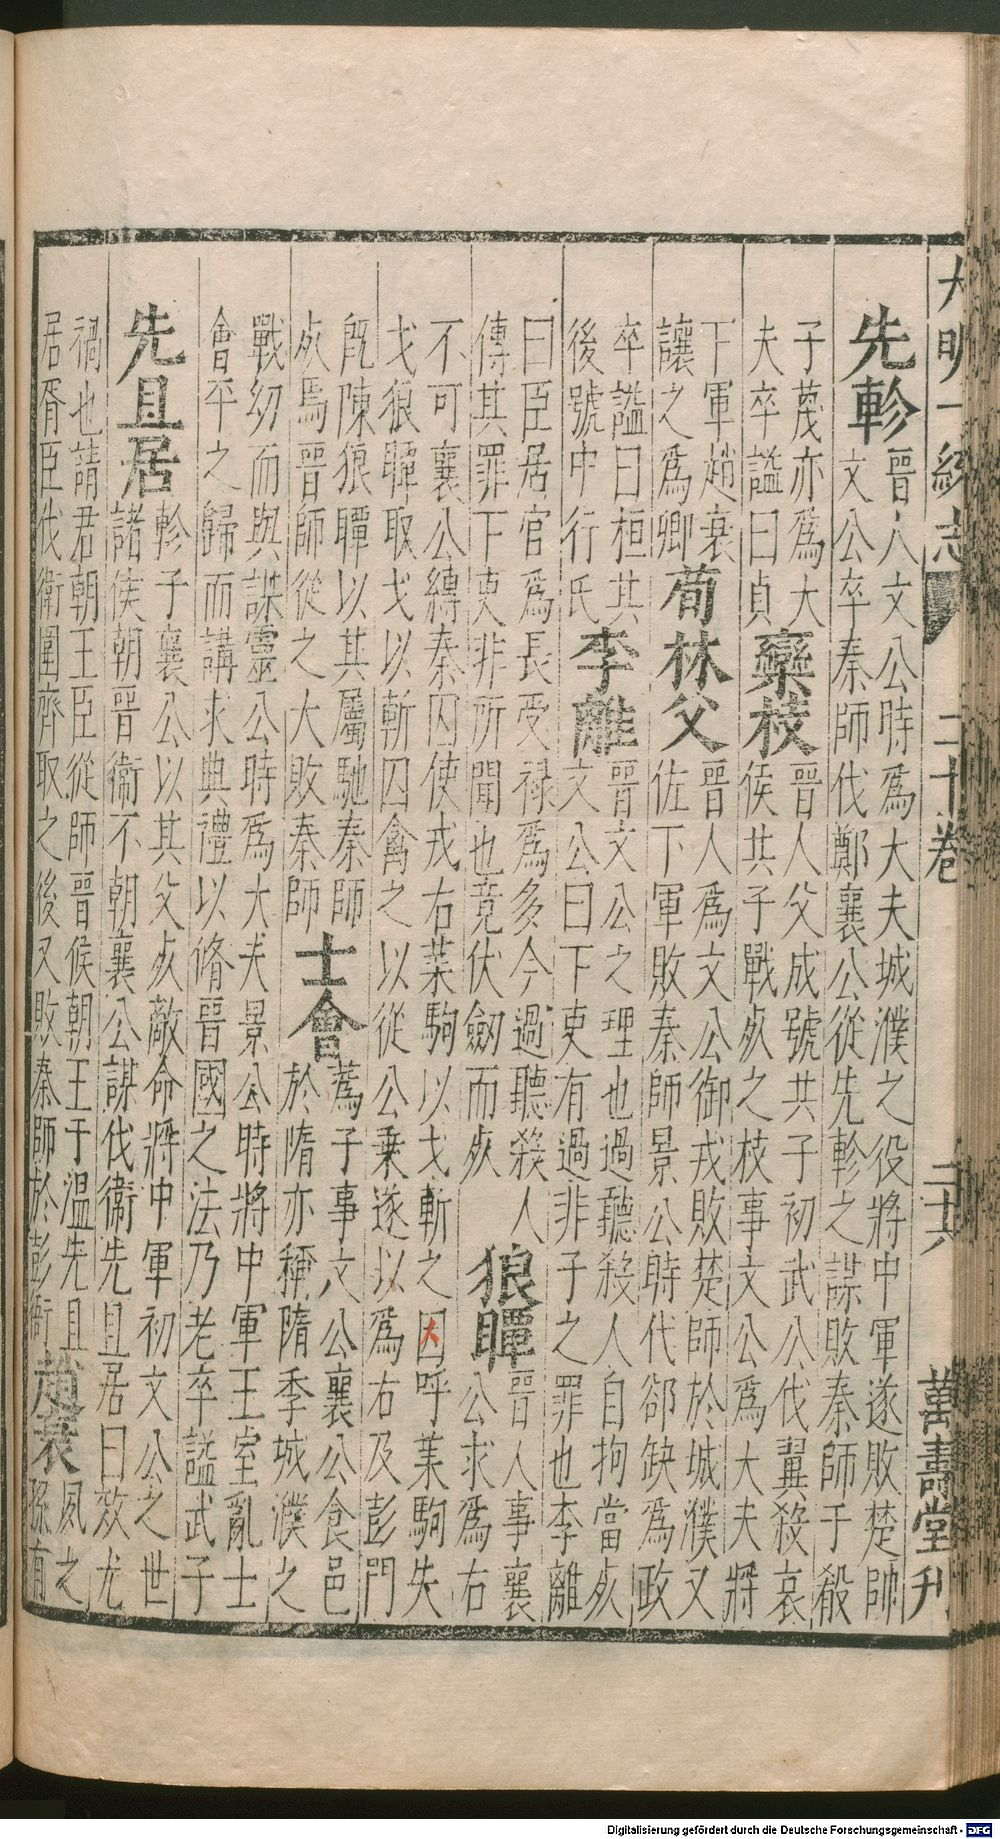 大明一統志 二十卷 二十六 萬壽堂刊
先軫
晉人文公時爲大夫城濮之役將中軍遂敗楚師
文公卒秦師伐鄭襄公從先軫之謀敗秦師于殽
子蔑亦爲大
夫卒謚曰貞
欒枝
晉人父成號共子初武公伐翼殺哀
侯其子戰死之枝事文公爲大夫將
下軍趙衰
讓之爲卿
荀林父
晉人爲文公御戎敗楚師於城濮又
佐下軍敗秦師景公時代郤缺爲政
卒謚曰桓其
後號中行氏
李離
晉文公之理也過聽殺人自拘當死
文公曰下吏有過非子之罪也李離
曰臣居官爲長受祿爲多今過聽殺人
傳其罪下吏非所聞也竟伏劒而死
狼瞫
晉人事襄
公求爲右
不可襄公縛秦囚使戎右萊駒以戈斬之囚呼萊駒失
戈狼瞫取戈以斬囚禽之以從公乗遂以爲右及彭門
旣陳狼瞫以其屬馳秦師
死焉晉師從之大敗秦師
士會
蒍子事文公襄公食邑
於隋亦稱隋季城濮之
戰幼而與謀靈公時爲大夫景公時將中軍王室亂士
會平之歸而講求典禮以脩晉國之法乃老卒謚武子
先且居
軫子襄公以其父死敵命將中軍初文公之世
諸侯朝晉衞不朝襄公謀伐衞先且居曰效尤
禍也請君朝王臣從師晉侯朝王于温先且
居胥臣伐衞圍齊取之後又敗秦師於彭衙
趙衰
夙之
孫有
Digitalisierung gefördert durch die Deutsche Forschungsgemeinschaft - DFG